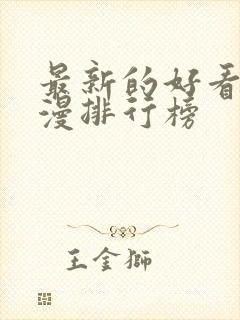 最新的好看
漫排行榜
王金獅